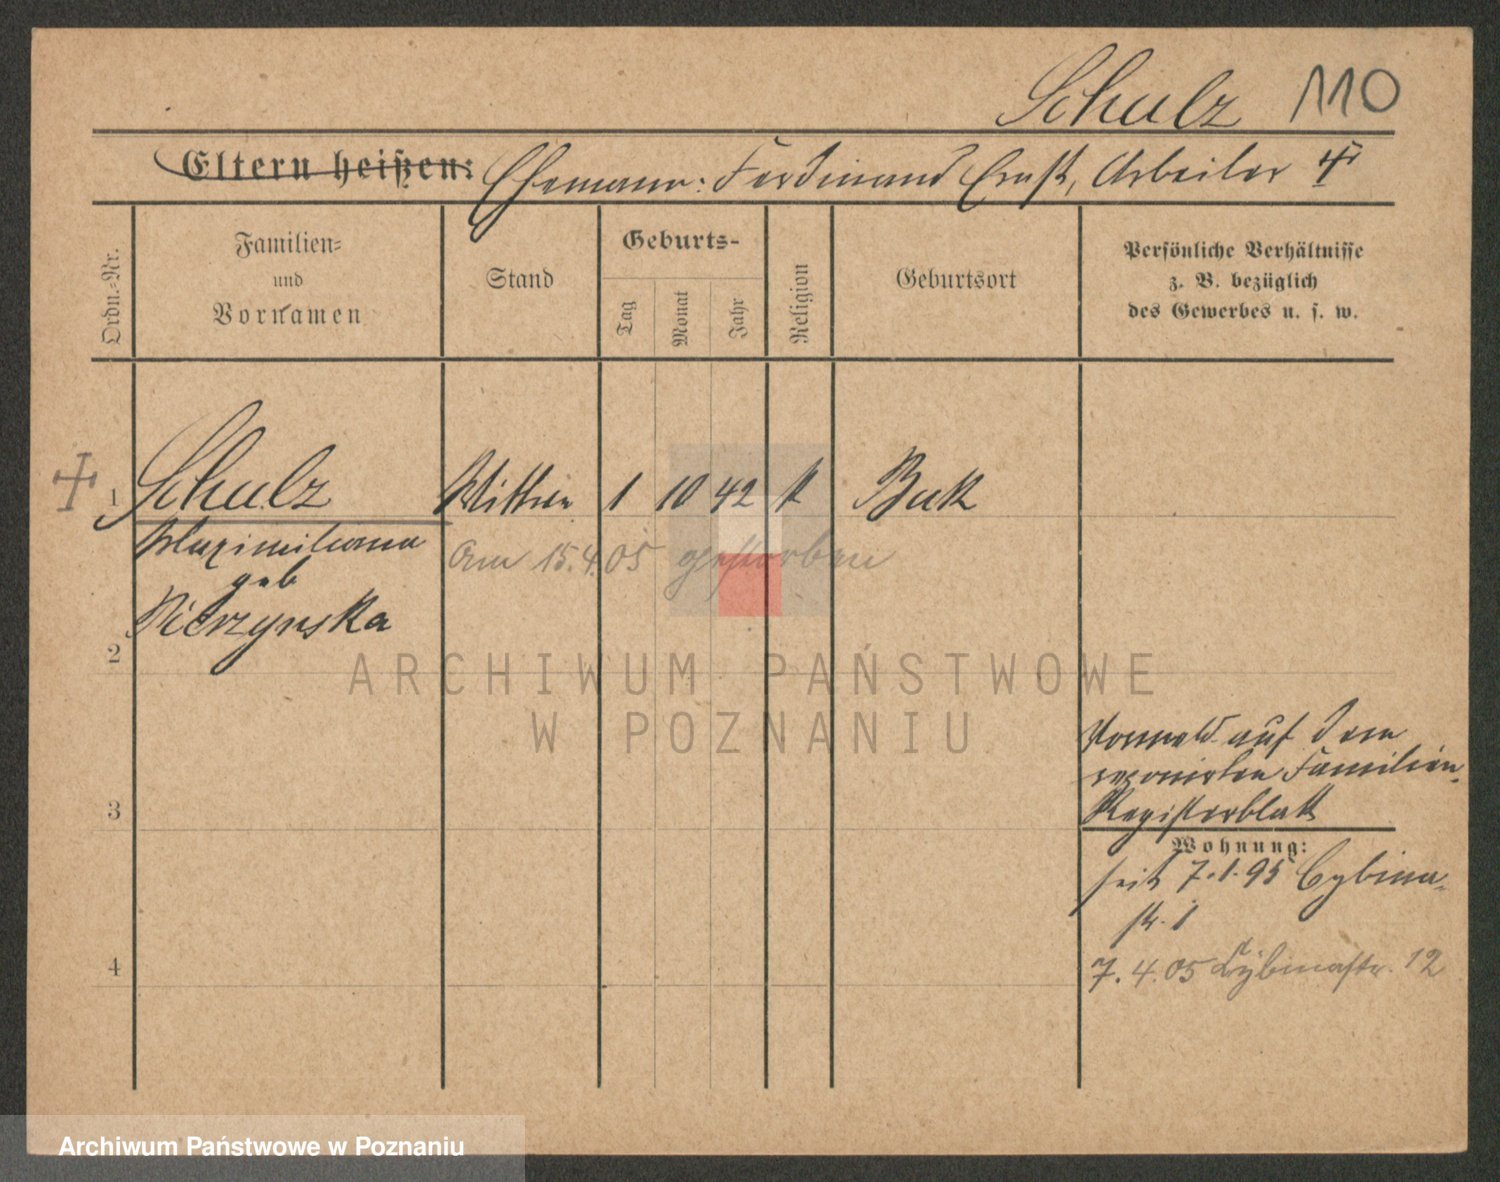 Schulz 110
Eltern heißen: Ehemann: Ferdinand Ernst, Arbeiter
Ordn.-Nr.
Familien-
und
Vornamen
Stand
Geburts-
Tag
Monat
Jahr
Religion
Geburtsort
Persönliche Verhältnisse
z. B. bezüglich
des Gewerbes u. s. w.
1 Schulz Wittwe 1 10 42 k Buk
Maximiliana
geb
Am 15.4.05 gestorben
2
ARCHIWUM PAŃSTWOWE
W POZNANIU
auf dem
Familien-
Registerblatt
3
Wohnung:
seit 7.1.95 Cybina-
str. 1
4
7.4.05 Cybinastr. 12
Archiwum Państwowe w Poznaniu